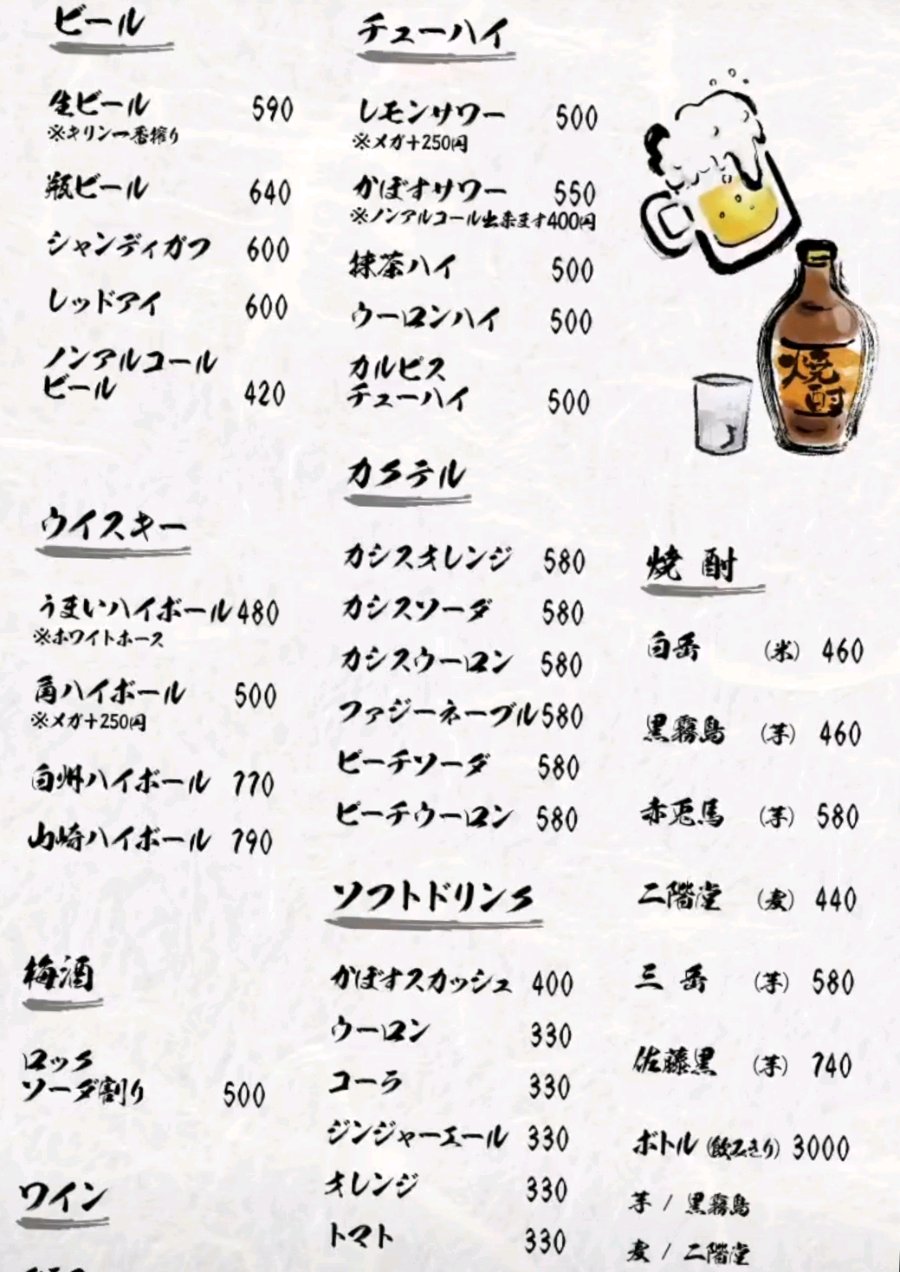 ビール
生ビール 590
※キリン一番搾り
瓶ビール 640
シャンディガフ 600
レッドアイ 600
ノンアルコール
ビール 420
ウイスキー
うまいハイボール 480
※ホワイトホース
角ハイボール 500
※メガ+250円
白州ハイボール 770
山崎ハイボール 790
梅酒
ロック
ソーダ割り 500
ワイン
チューハイ
レモンサワー 500
※メガ+250円
かぼすサワー 550
※ノンアルコール出来ます400円
抹茶ハイ 500
ウーロンハイ 500
カルピス
チューハイ 500
カクテル
カシスオレンジ 580
カシスソーダ 580
カシスウーロン 580
ファジーネーブル 580
ピーチソーダ 580
ピーチウーロン 580
ソフトドリンク
かぼすスカッシュ 400
ウーロン 330
コーラ 330
ジンジャーエール 330
オレンジ 330
トマト 330
焼酎
焼酎
白岳 (米) 460
黒霧島 (芋) 460
赤兎馬 (芋) 580
二階堂 (麦) 440
三岳 (芋) 580
佐藤黒 (芋) 740
ボトル (飲みきり) 3000
芋 / 黒霧島
麦 / 二階堂